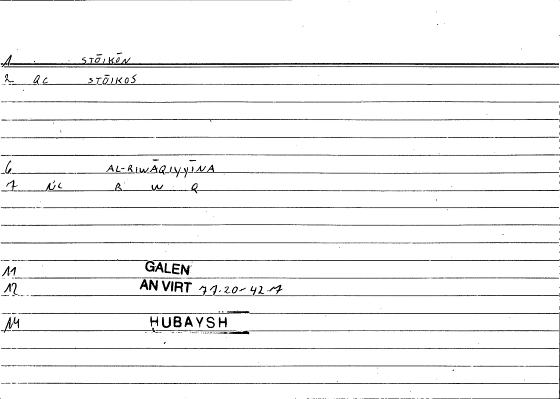 1 STŌIKŌN
2 QC STŌIKOS
6 AL-RIWĀQIYYĪNA
7 NC R W Q
11 GALEN
12 AN VIRT 71.20-42.7
14 HUBAYSH